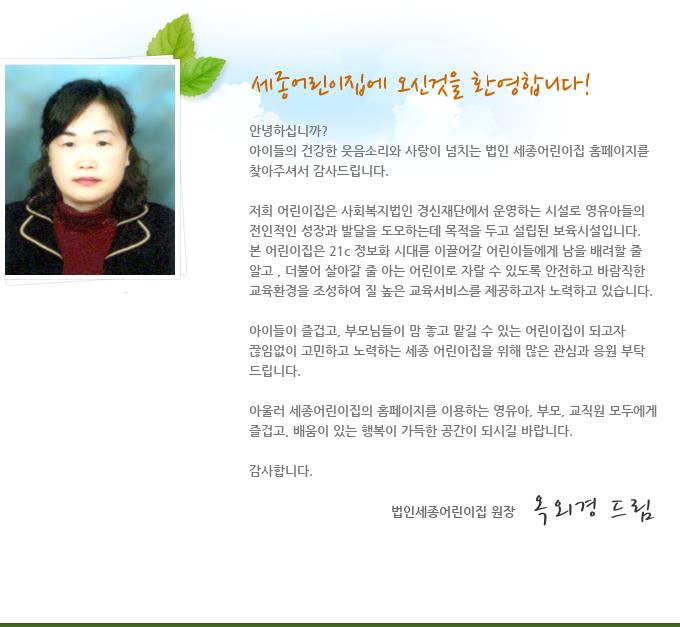 세종어린이집에 오신것을 환영합니다!
안녕하십니까?
아이들의 건강한 웃음소리와 사랑이 넘치는 법인 세종어린이집 홈페이지를
찾아주셔서 감사드립니다.
저희 어린이집은 사회복지법인 경신재단에서 운영하는 시설로 영유아들의
전인적인 성장과 발달을 도모하는데 목적을 두고 설립된 보육시설입니다.
본 어린이집은 21c 정보화 시대를 이끌어갈 어린이들에게 남을 배려할 줄
알고 , 더불어 살아갈 줄 아는 어린이로 자랄 수 있도록 안전하고 바람직한
교육환경을 조성하여 질 높은 교육서비스를 제공하고자 노력하고 있습니다.
아이들이 즐겁고, 부모님들이 맘 놓고 맡길 수 있는 어린이집이 되고자
끊임없이 고민하고 노력하는 세종 어린이집을 위해 많은 관심과 응원 부탁
드립니다.
아울러 세종어린이집의 홈페이지를 이용하는 영유아, 부모, 교직원 모두에게
즐겁고, 배움이 있는 행복이 가득한 공간이 되시길 바랍니다.
감사합니다.
법인세종어린이집 원장 옥외경 드림